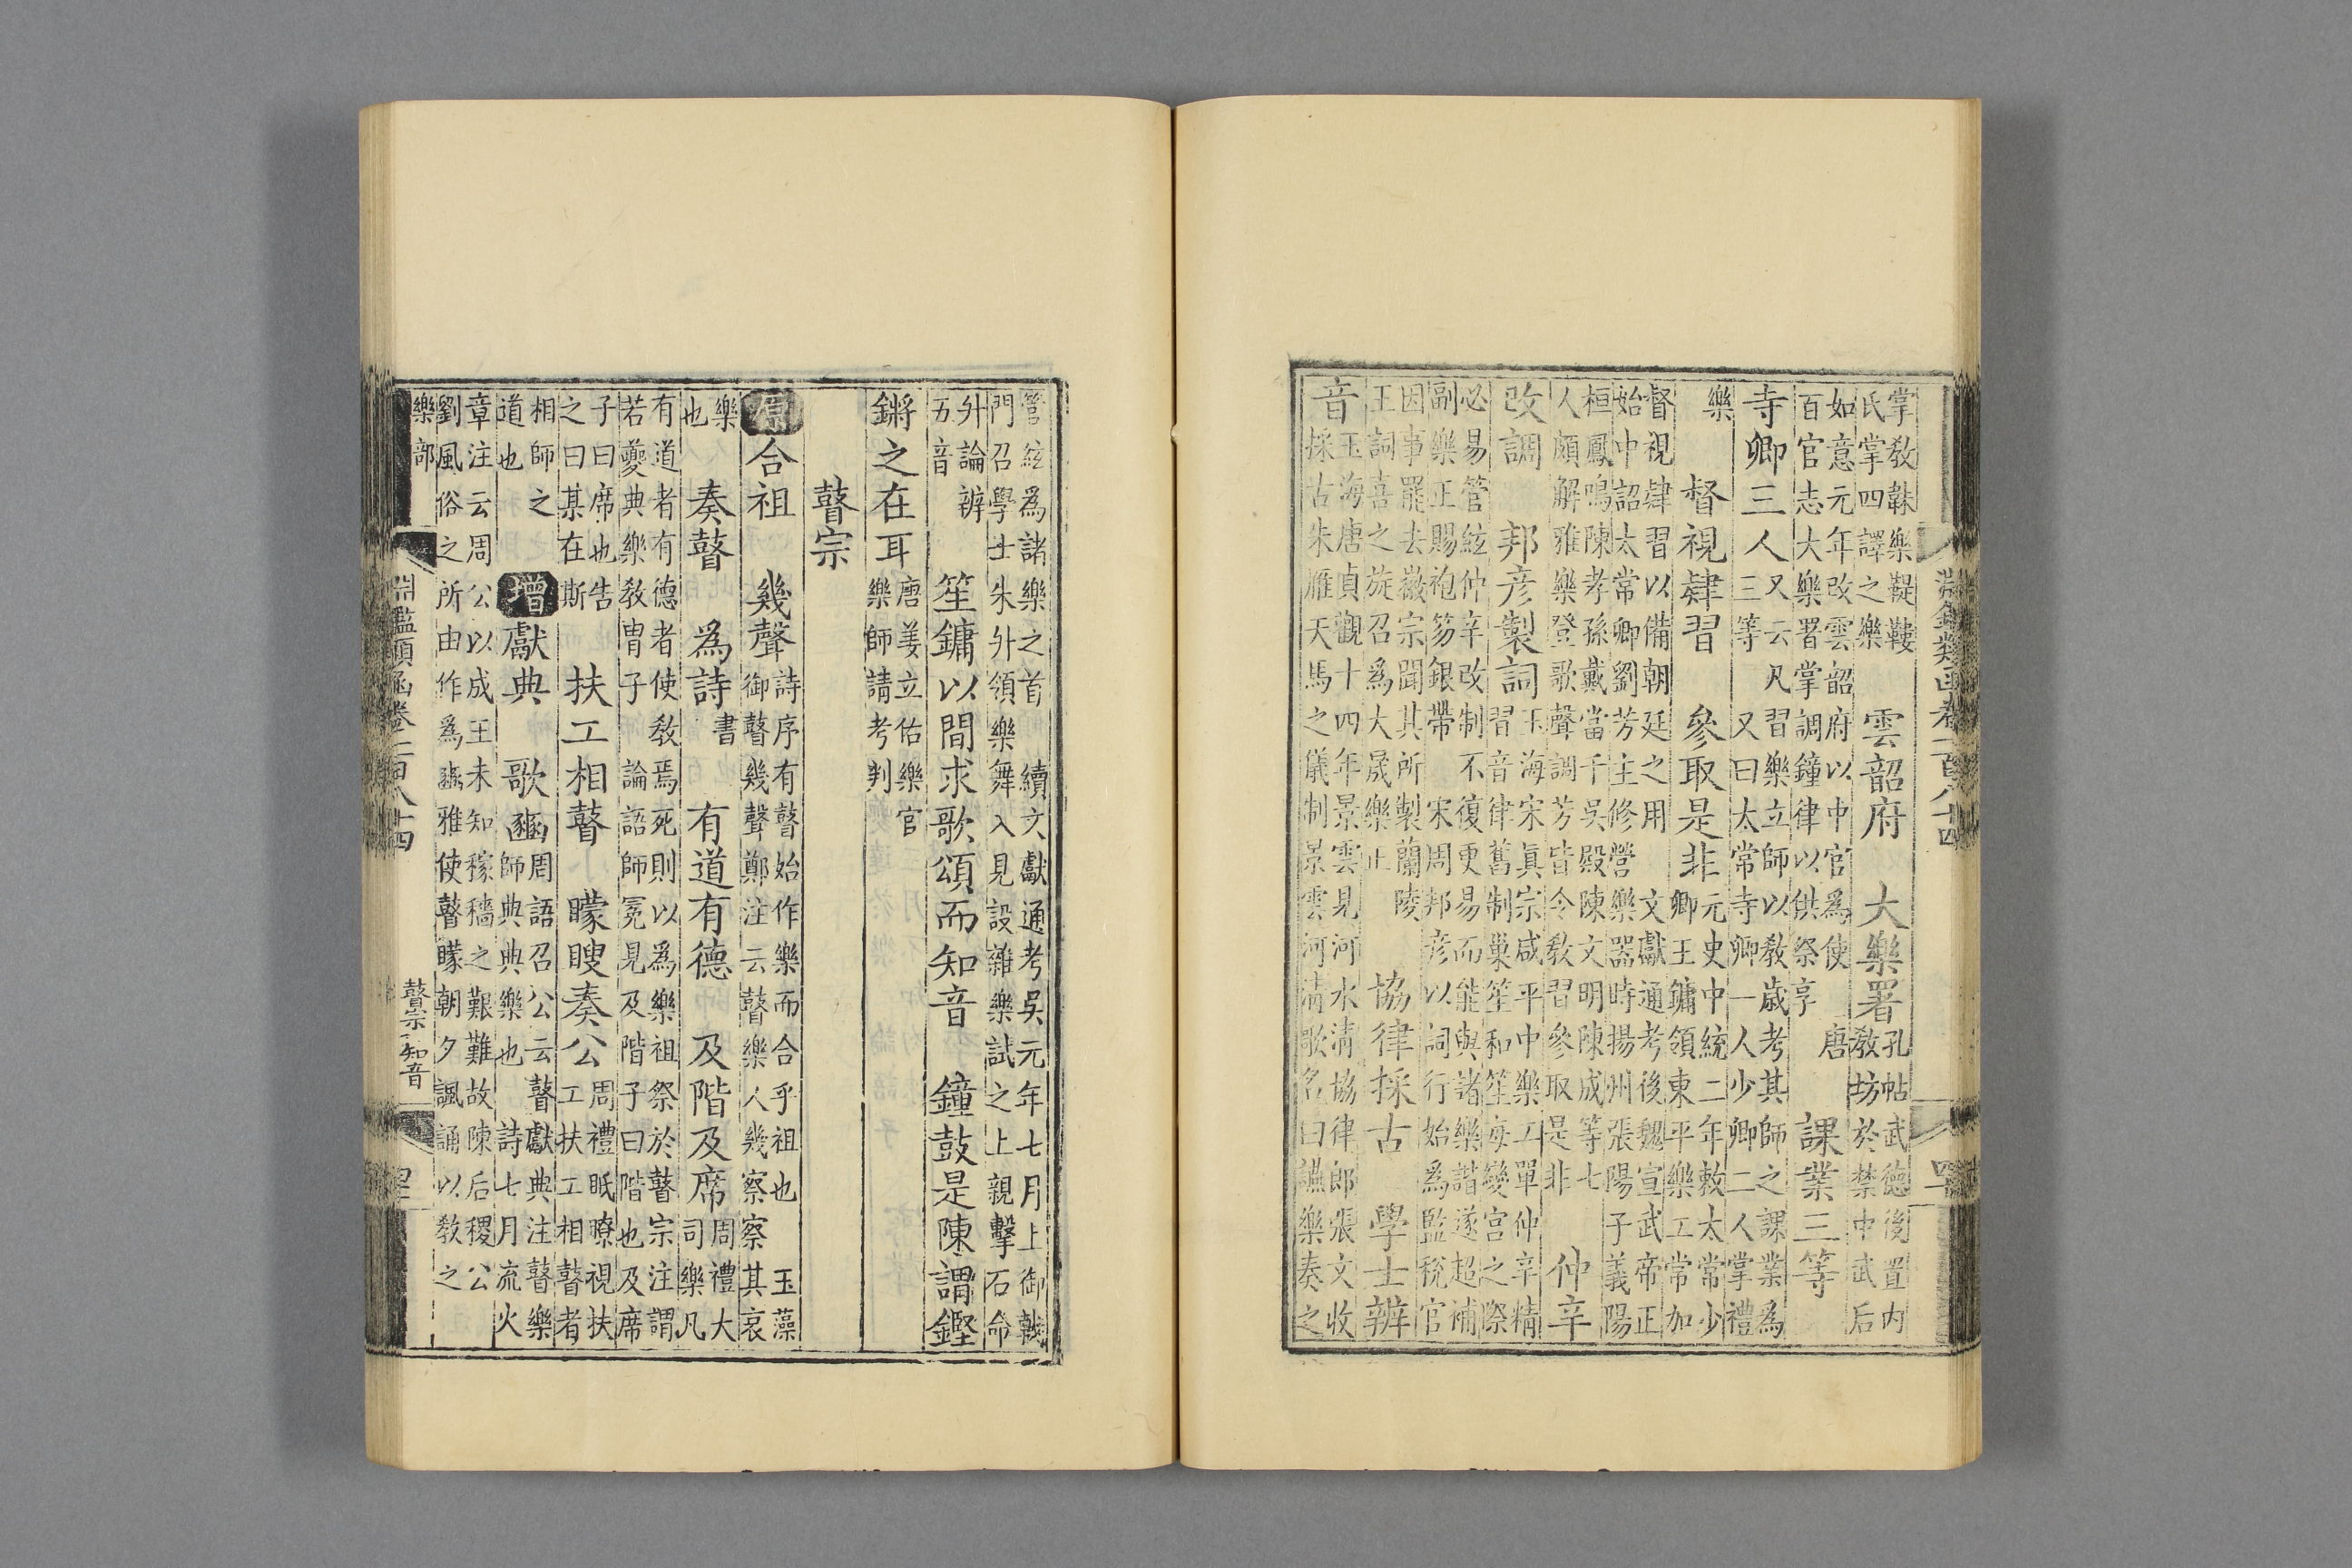 掌敎韎樂鞮鞻
氏掌四譯之樂
雲韶府
大樂署
孔帖武德後置内
敎坊於禁中武后
如意元年改雲韶府以中官爲使
唐
百官志大樂署掌調鐘律以供祭享
課業三等
寺卿三人
又云凡習樂立師以敎歲考其師之課業爲
三等
又曰太常寺卿一人少卿二人掌禮
樂
督視肄習
參取是非
元史中統二年敕太常少
卿王鏞領東平樂工常加
督視肄習以備朝廷之用
文獻通考後魏宣武帝正
始中詔太常卿劉芳主修營樂器時揚州張陽子義陽
桓鳳鳴陳孝孫戴當千吳殿陳文明陳成等七
人頗解雅樂登歌聲調芳皆令敎習參取是非
仲辛
改調
邦彦製詞
玉海宋眞宗咸平中樂工單仲辛精
習音律舊制巢笙和笙每變宮之際
必易管絃仲辛改制不復更易而能與諸樂諧遂超補
副樂正賜袍笏銀帶
宋周邦彦以詞行始爲監稅官
因事罷去徽宗聞其所製蘭陵
王詞喜之旋召爲大晟樂正
協律採古
學士辨
音
玉海唐貞觀十四年景雲見河水清協律郎張文收
採古朱雁天馬之儀制景雲河清歌名曰讌樂奏之
管絃爲諸樂之首
續文獻通考吳元年七月上御戟
門召學士朱升領樂舞入見設雜樂試之上親擊石命
升論辨
五音
笙鏞以間求歌頌而知音
鐘鼓是陳謂鏗
鏘之在耳
唐姜立佑樂官
樂師請考判
瞽宗
原
合祖
幾聲
詩序有瞽始作樂而合乎祖也
玉藻
御瞽幾聲鄭注云瞽樂人幾察察其哀
樂
也
奏瞽
爲詩
書
有道有德
及階及席
周禮大
司樂凡
有道者有德者使敎焉死則以爲樂祖祭於瞽宗注謂
若夔典樂敎胄子
論語師冕見及階子曰階也及席
子曰席也告
之曰某在斯
扶工相瞽
矇瞍奏公
周禮眡瞭視扶
工扶工相瞽者
相師之
道也
增
獻典
歌豳
周語召公云瞽獻典注瞽樂
師典典樂也
詩七月流火
章注云周公以成王未知稼穡之艱難故陳后稷公
劉風俗之所由作爲豳雅使瞽矇朝夕諷誦以敎之
樂部
淵鑑類函卷一百八十四
瞽宗
知音